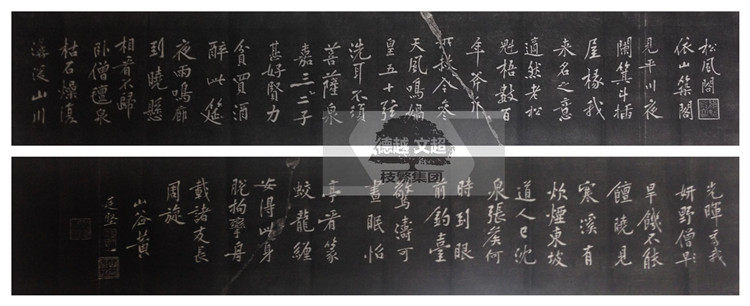 松風閣
依山築閣
見平川夜
闌箕斗插
屋椽我
來名之意
適然老松
魁梧數百
年斧斤
所赦今參
天風鳴媧
皇五十弦
洗耳不須
菩薩泉
嘉二三子
甚好賢力
貧買酒
醉此筵
夜雨鳴廊
到曉懸
相看不歸
臥僧氈泉
枯石燥復
潺湲山川
光暉為我
妍野僧早
旱饑不能
饘曉見
寒溪有
炊煙東坡
道人已沈
泉張侯何
時到眼
前釣臺
驚濤可
晝眠怡
亭看篆
蛟龍纏
安得此身
脫拘攣舟
載諸友長
周旋
山谷黃
庭堅
德越 文超
枝繁集团